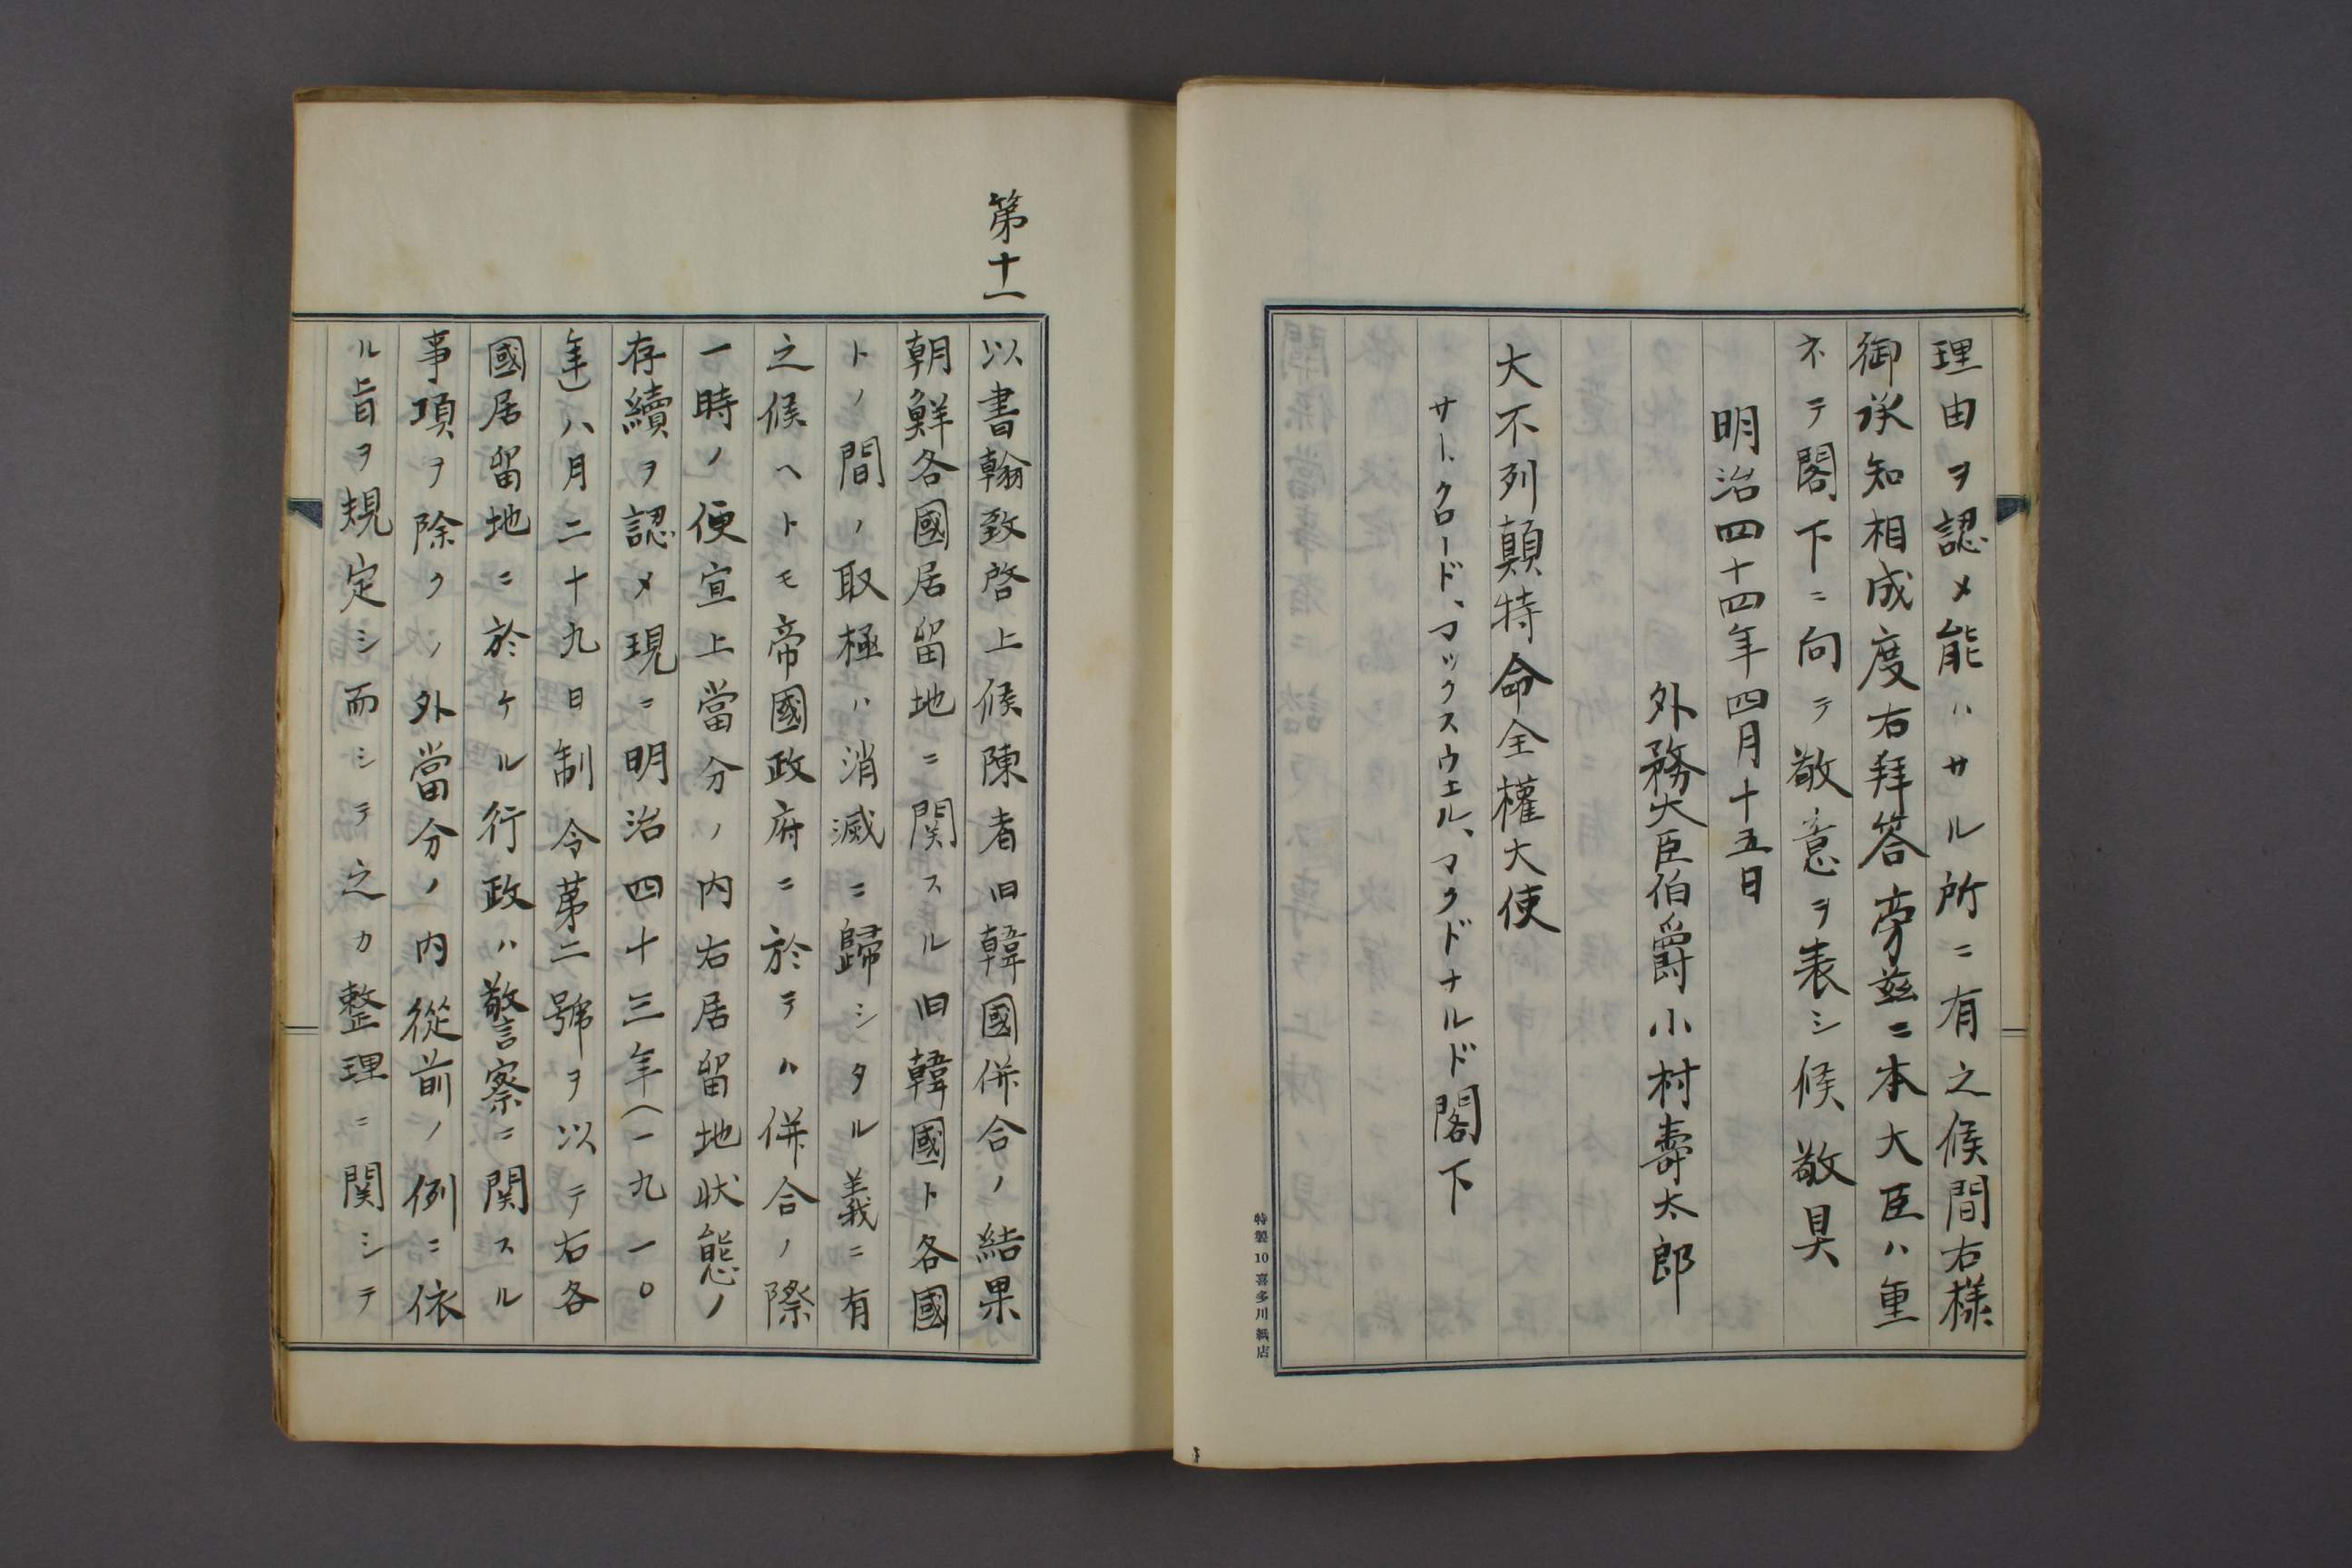 理由ヲ認メ能ハサル所ニ有之候間右様
御承知相成度右拜答旁玆ニ本大臣ハ重
ネテ閣下ニ向テ敬意ヲ表シ候敬具
明治四十四年四月十五日
外務大臣伯爵小村壽太郎
大不列顛特命全權大使
サー、クロード、マックスウエル、マクドナルド閣下
特製10喜多川紙店
第十一
以書翰致啓上候陳者旧韓國併合ノ結果
朝鮮各國居留地ニ関スル旧韓國ト各國
トノ間ノ取極ハ消滅ニ歸シタル義ニ有
之候ヘトモ帝國政府ニ於テハ併合ノ際
一時ノ便宜上當分ノ内右居留地状態ノ
存續ヲ認メ現ニ明治四十三年(一九一〇
年)八月二十九日制令苐二號ヲ以テ右各
國居留地ニ於ケル行政ハ警察ニ関スル
事項ヲ除クノ外當分ノ内從前ノ例ニ依
ル旨ヲ規定シ而シテ之カ整理ニ関シテ